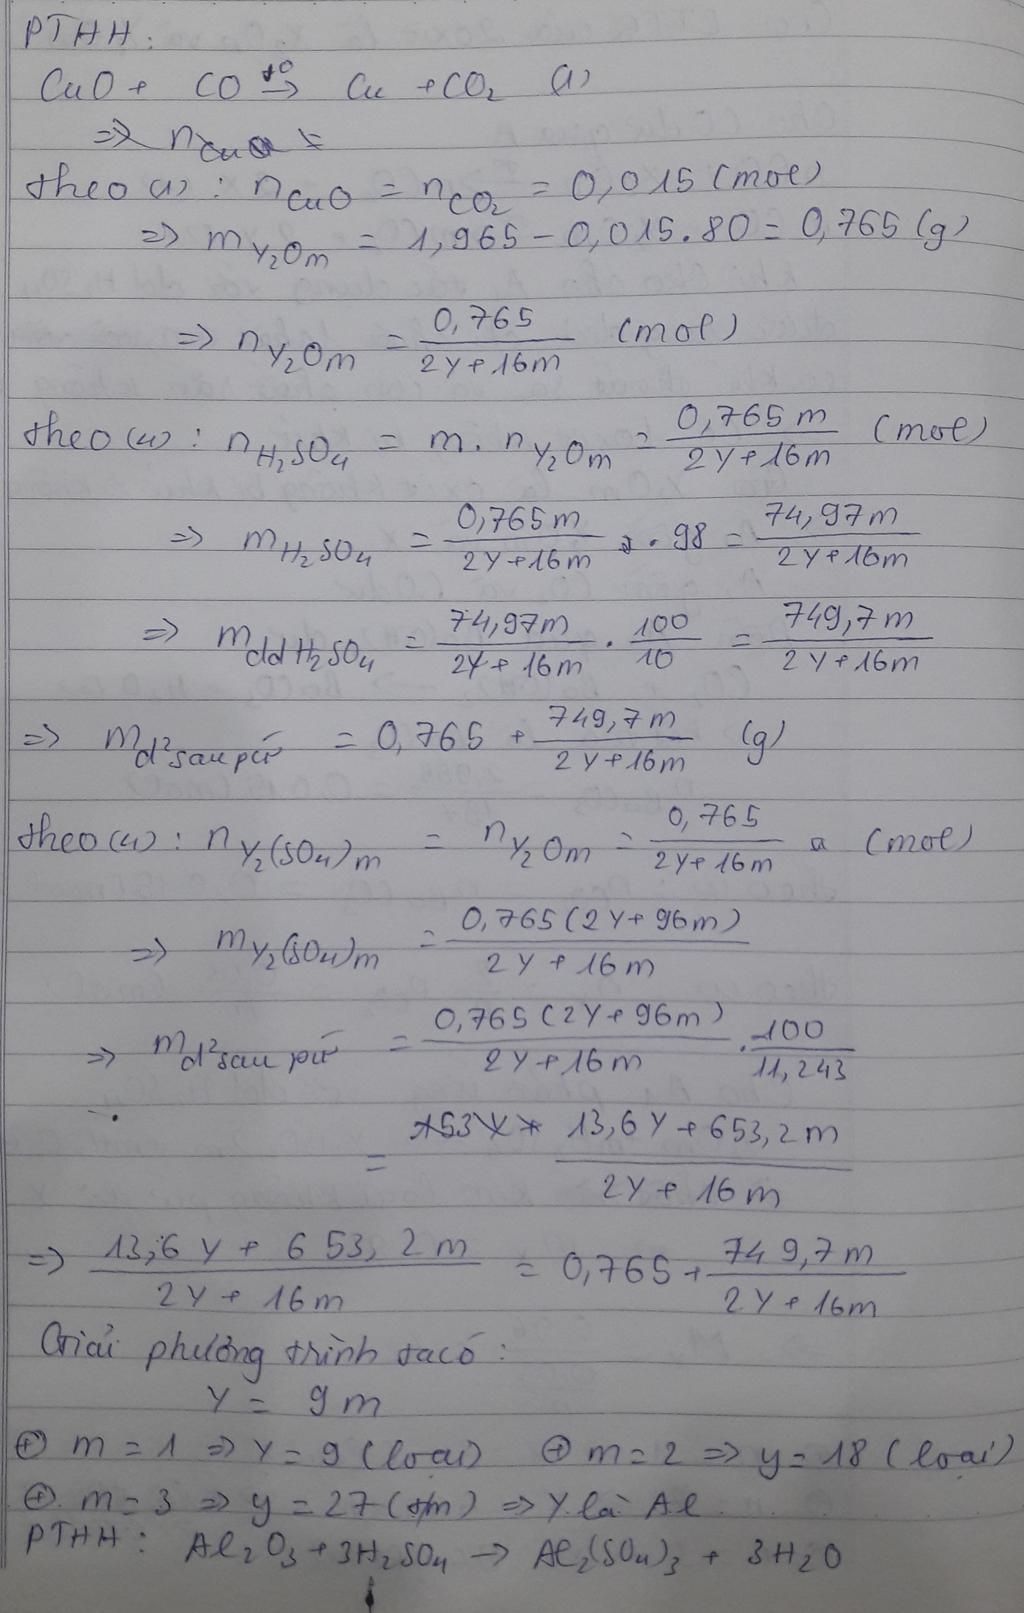 PTHH:
CuO + CO t⁰→ Cu + CO₂ (1)
=> n CuO =
theo (1) : n CuO = n CO₂ = 0,015 (mol)
=> m Y₂Om = 1,965 - 0,015.80 = 0,765 (g)
=> n Y₂Om = 0,765 / (2Y+16m) (mol)
theo (4) : n H₂SO₄ = m. n Y₂Om = 0,765m / (2Y+16m) (mol)
=> m H₂SO₄ = 0,765m / (2Y+16m) . 98 = 74,97m / (2Y+16m)
=> m ddH₂SO₄ = 74,97m / (2Y+16m) . 100/10 = 749,7m / (2Y+16m)
=> m d² sau pứ = 0,765 + 749,7m / (2Y+16m) (g)
theo (4) : n Y₂(SO₄)m = n Y₂Om = 0,765 / (2Y+16m) (mol)
=> m Y₂(SO₄)m = 0,765(2Y+96m) / (2Y+16m)
=> m d² sau pứ = 0,765(2Y+96m) / (2Y+16m) . 100/11,243
= 13,6Y+653,2m / (2Y+16m)
=> 13,6Y + 653,2m / (2Y+16m) = 0,765 + 749,7m / (2Y+16m)
Giải phương trình ta có :
Y = 9m
⊕ m = 1 => Y = 9 (loại) ⊕ m = 2 => y = 18 (loại)
⊕ m = 3 => y = 27 (t/m) => Y là Al
PTHH : Al₂O₃ + 3H₂SO₄ → Al₂(SO₄)₃ + 3H₂O